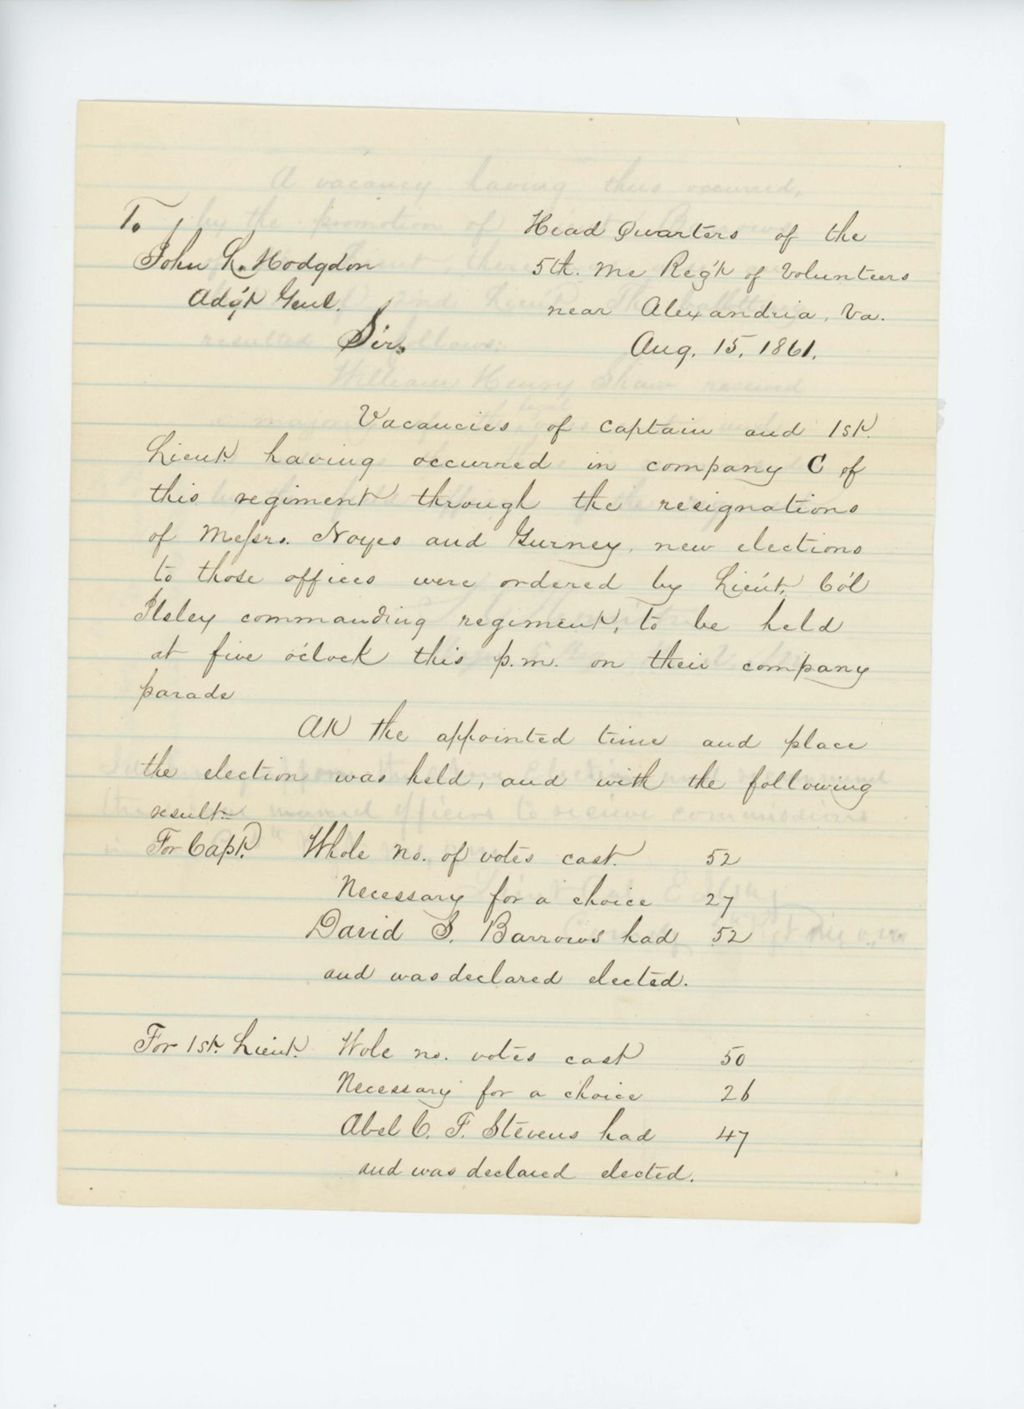 To
John L. Hodgdon
Adj't Genl.
Sir,
Head Quarters of the
5th. Me Reg't of Volunteers
near Alexandria, Va.
Aug. 15, 1861.
Vacancies of Captain and 1st.
Lieut. having occurred in company C of
this regiment through the resignations
of Messrs. Noyes and Gurney, new elections
to those offices were ordered by Lieut. Col
Ilsley commanding regiment, to be held
at five o'clock this p.m. on their company
parade
At the appointed time and place
the election was held, and with the following
result:-
For Capt. Whole no. of votes cast. 52
Necessary for a choice 27
David S. Barrows had 52
and was declared elected.
For 1st. Lieut. Wole no. votes cast 50
Necessary for a choice 26
Abel C. T. Stevens had 47
and was declared elected.